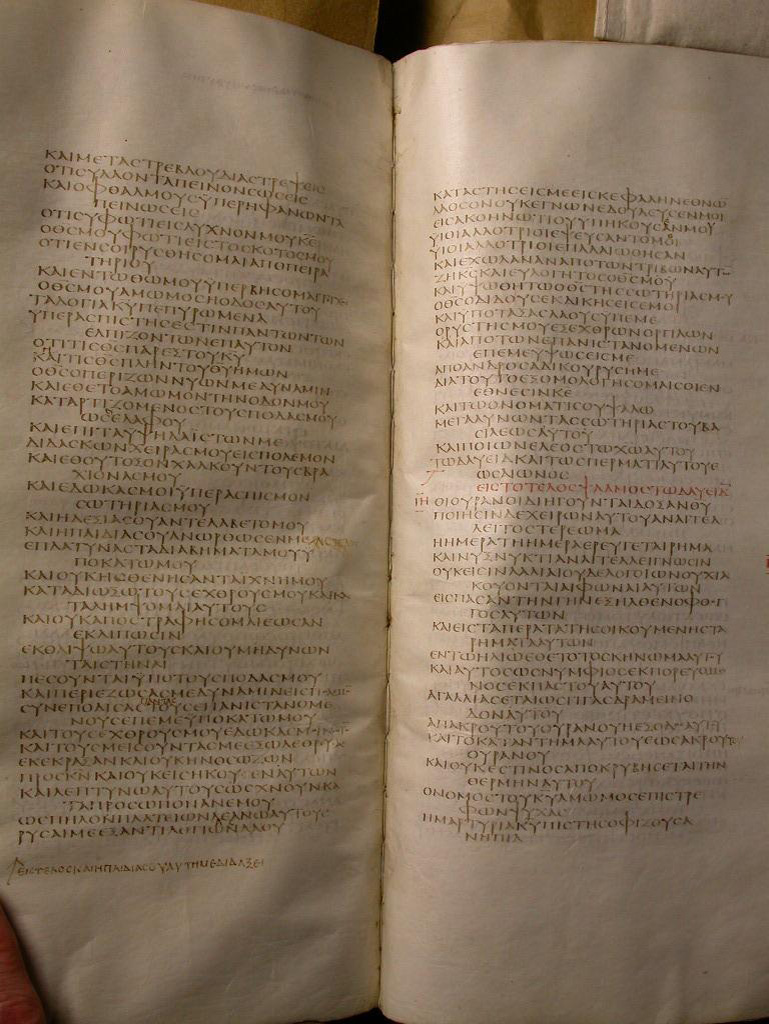 ΚΑΙΜΕΤΑϹΤΡΕΒΛΟΥΔΙΑϹΤΡΕΨΕΙϹ
ΟΤΙϹΥΛΑΟΝΤΑΠΕΙΝΟΝϹΩϹΕΙϹ
ΚΑΙΟΦΘΑΛΜΟΥϹΫΠΕΡΗΦΑΝΩΝΤΑ
ΠΕΙΝΩϹΕΙϹ
ΟΤΙϹΥΦΩΤΙΕΙϹΛΥΧΝΟΝΜΟΥΚΕ
ΟΘϹΜΟΥΦΩΤΙΕΙϹΤΟϹΚΟΤΟϹΜΟΥ
ΟΤΙΕΝϹΟΙΡΥϹΘΗϹΟΜΑΙΑΠΟΠΕΙΡΑ
ΤΗΡΙΟΥ
ΚΑΙΕΝΤΩΘΩΜΟΥΫΠΕΡΒΗϹΟΜΑΙΤΙΧΟϹ
ΟΘϹΜΟΥΑΜΩΜΟϹΗΟΔΟϹΑΥΤΟΥ
ΤΑΛΟΓΙΑΚΥΠΕΠΥΡΩΜΕΝΑ
ΫΠΕΡΑϹΠΙϹΤΗϹΕϹΤΙΝΠΑΝΤΩΝΤΩΝ
ΕΛΠΙΖΟΝΤΩΝΕΠΑΥΤΟΝ
ΟΤΙΤΙϹΘϹΠΑΡΕΞΤΟΥΚΥ
ΚΑΙΤΙϹΘϹΠΛΗΝΤΟΥΘΥΗΜΩΝ
ΟΘϹΟΠΕΡΙΖΩΝΝΥΩΝΜΕΔΥΝΑΜΙΝ
ΚΑΙΕΘΕΤΟΑΜΩΜΟΝΤΗΝΟΔΟΝΜΟΥ
ΚΑΤΑΡΤΙΖΟΜΕΝΟϹΤΟΥϹΠΟΔΑϹΜΟΥ
ΩϹΕΛΑΦΟΥ
ΚΑΙΕΠΙΤΑΫΨΗΛΑΪϹΤΩΝΜΕ
ΔΙΔΑϹΚΩΝΧΕΙΡΑϹΜΟΥΕΙϹΠΟΛΕΜΟΝ
ΚΑΙΕΘΟΥΤΟΞΟΝΧΑΛΚΟΥΝΤΟΥϹΒΡΑ
ΧΙΟΝΑϹΜΟΥ
ΚΑΙΕΔΩΚΑϹΜΟΙΫΠΕΡΑϹΠΙϹΜΟΝ
ϹΩΤΗΡΙΑϹΜΟΥ
ΚΑΙΗΔΕΞΙΑϹΟΥΑΝΤΕΛΑΒΕΤΟΜΟΥ
ΚΑΙΗΠΑΙΔΙΑϹΟΥΑΝΩΡΘΩϹΕΝΜΕ
ΕΠΛΑΤΥΝΑϹΤΑΔΙΑΒΗΜΑΤΑΜΟΥΫ
ΠΟΚΑΤΩΜΟΥ
ΚΑΙΟΥΚΗϹΘΕΝΗϹΑΝΤΑΪΧΝΗΜΟΥ
ΚΑΤΑΔΙΩΞΩΤΟΥϹΕΧΘΡΟΥϹΜΟΥΚΑΙΚΑ
ΤΑΛΗΜΨΟΜΑΙΑΥΤΟΥϹ
ΚΑΙΟΥΚΑΠΟϹΤΡΑΦΗϹΟΜΑΙΕΩϹΑΝ
ΕΚΛΙΠΩϹΙΝ
ΕΚΘΛΙΨΩΑΥΤΟΥϹΚΑΙΟΥΜΗΔΥΝΩΝ
ΤΑΙϹΤΗΝΑΙ
ΠΕϹΟΥΝΤΑΙΫΠΟΤΟΥϹΠΟΔΑϹΜΟΥ
ΚΑΙΠΕΡΙΕΖΩϹΑϹΜΕΔΥΝΑΜΙΝΕΙϹΠΟΛΕΜΟΝ
ΠΑΝΤΑϹ
ϹΥΝΕΠΟΔΙϹΑϹΤΟΥϹΕΠΑΝΙϹΤΑΝΟΜΕ
ΝΟΥϹΕΠΕΜΕΫΠΟΚΑΤΩΜΟΥ
ΚΑΙΤΟΥϹΕΧΘΡΟΥϹΜΟΥΕΔΩΚΑϹΜΟΙΝΩΤΟΝ
ΚΑΙΤΟΥϹΜΕΙϹΟΥΝΤΑϹΜΕΕΞΩΛΕΘΡΥϹΑϹ
ΕΚΕΚΡΑΞΑΝΚΑΙΟΥΚΗΝΟϹΩΖΩΝ
ΠΡΟϹΚΝΚΑΙΟΥΚΕΙϹΗΚΟΥϹΕΝΑΥΤΩΝ
ΚΑΙΛΕΠΤΥΝΩΑΥΤΟΥϹΩϹΧΝΟΥΝΚΑ
ΤΑΠΡΟϹΩΠΟΝΑΝΕΜΟΥ
ΩϹΠΗΛΟΝΠΛΑΤΕΙΩΝΛΕΑΝΩΑΥΤΟΥϹ
ΡΥϹΑΙΜΕΕΞΑΝΤΙΛΟΓΙΩΝΛΑΟΥ
ΕΙϹΤΕΛΟϹΚΑΙΗΠΑΙΔΙΑϹΟΥΑΥΤΗΜΕΔΙΔΑΞΕΙ
ΚΑΤΑϹΤΗϹΕΙϹΜΕΕΙϹΚΕΦΑΛΗΝΕΘΝΩ
ΛΑΟϹΟΝΟΥΚΕΓΝΩΝΕΔΟΥΛΕΥϹΕΝΜΟΙ
ΕΙϹΑΚΟΗΝΩΤΙΟΥΫΠΗΚΟΥϹΑΝΜΟΥ
ΥΙΟΙΑΛΛΟΤΡΙΟΙΕΨΕΥϹΑΝΤΟΜΟΙ
ΥΙΟΙΑΛΛΟΤΡΙΟΙΕΠΑΛΑΙΩΘΗϹΑΝ
ΚΑΙΕΧΩΛΑΝΑΝΑΠΟΤΩΝΤΡΙΒΩΝΑΥΤΩΝ
ΖΗΚϹΚΑΙΕΥΛΟΓΗΤΟϹΟΘϹΜΟΥ
ΚΑΙΥΨΩΘΗΤΩΟΘϹΤΗϹϹΩΤΗΡΙΑϹΜΟΥ
ΟΘϹΟΔΙΔΟΥϹΕΚΔΙΚΗϹΕΙϹΕΜΟΙ
ΚΑΙΫΠΟΤΑΞΑϹΛΑΟΥϹΫΠΕΜΕ
ΟΡΥϹΤΗϹΜΟΥΕΞΕΧΘΡΩΝΟΡΓΙΛΩΝ
ΚΑΙΑΠΟΤΩΝΕΠΑΝΙϹΤΑΝΟΜΕΝΩΝ
ΕΠΕΜΕΫΨΩϹΕΙϹΜΕ
ΑΠΟΑΝΔΡΟϹΑΔΙΚΟΥΡΥϹΗΜΕ
ΔΙΑΤΟΥΤΟΕΞΟΜΟΛΟΓΗϹΟΜΑΙϹΟΙΕΝ
ΕΘΝΕϹΙΝΚΕ
ΚΑΙΤΩΟΝΟΜΑΤΙϹΟΥΨΑΛΩ
ΜΕΓΑΛΥΝΩΝΤΑϹϹΩΤΗΡΙΑϹΤΟΥΒΑ
ϹΙΛΕΩϹΑΥΤΟΥ
ΚΑΙΠΟΙΩΝΕΛΕΟϹΤΩΧΩΑΥΤΟΥ
ΤΩΔΑΥΕΙΔΚΑΙΤΩϹΠΕΡΜΑΤΙΑΥΤΟΥΕ
ΩϹΑΙΩΝΟϹ
ΕΙϹΤΟΤΕΛΟϹΨΑΛΜΟϹΤΩΔΑΥΕΙΔ
ΙΗ ΟΙΟΥΡΑΝΟΙΔΙΗΓΟΥΝΤΑΙΔΟΞΑΝΘΥ
ΠΟΙΗϹΙΝΔΕΧΕΙΡΩΝΑΥΤΟΥΑΝΑΓΓΕΛ
ΛΕΙΤΟϹΤΕΡΕΩΜΑ
ΗΜΕΡΑΤΗΗΜΕΡΑΕΡΕΥΓΕΤΑΙΡΗΜΑ
ΚΑΙΝΥΞΝΥΚΤΙΑΝΑΓΓΕΛΛΕΙΓΝΩϹΙΝ
ΟΥΚΕΙϹΙΝΛΑΛΙΑΙΟΥΔΕΛΟΓΟΙΩΝΟΥΧΙΑ
ΚΟΥΟΝΤΑΙΑΙΦΩΝΑΙΑΥΤΩΝ
ΕΙϹΠΑϹΑΝΤΗΝΓΗΝΕΞΗΛΘΕΝΟΦΘΟΓ
ΓΟϹΑΥΤΩΝ
ΚΑΙΕΙϹΤΑΠΕΡΑΤΑΤΗϹΟΙΚΟΥΜΕΝΗϹΤΑ
ΡΗΜΑΤΑΑΥΤΩΝ
ΕΝΤΩΗΛΙΩΕΘΕΤΟΤΟϹΚΗΝΩΜΑΑΥΤΟΥ
ΚΑΙΑΥΤΟϹΩϹΝΥΜΦΙΟϹΕΚΠΟΡΕΥΟΜΕ
ΝΟϹΕΚΠΑϹΤΟΥΑΥΤΟΥ
ΑΓΑΛΛΙΑϹΕΤΑΙΩϹΓΙΓΑϹΔΡΑΜΕΙΝΟ
ΔΟΝΑΥΤΟΥ
ΑΠΑΚΡΟΥΤΟΥΟΥΡΑΝΟΥΗΕΞΟΔΟϹΑΥΤΟΥ
ΚΑΙΤΟΚΑΤΑΝΤΗΜΑΑΥΤΟΥΕΩϹΑΚΡΟΥΤΟΥ
ΟΥΡΑΝΟΥ
ΚΑΙΟΥΚΕϹΤΙΝΟϹΑΠΟΚΡΥΒΗϹΕΤΑΙΤΗΝ
ΘΕΡΜΗΝΑΥΤΟΥ
ΟΝΟΜΟϹΤΟΥΚΥΑΜΩΜΟϹΕΠΙϹΤΡΕ
ΦΩΝΨΥΧΑϹ
ΗΜΑΡΤΥΡΙΑΚΥΠΙϹΤΗϹΟΦΙΖΟΥϹΑ
ΝΗΠΙΑ